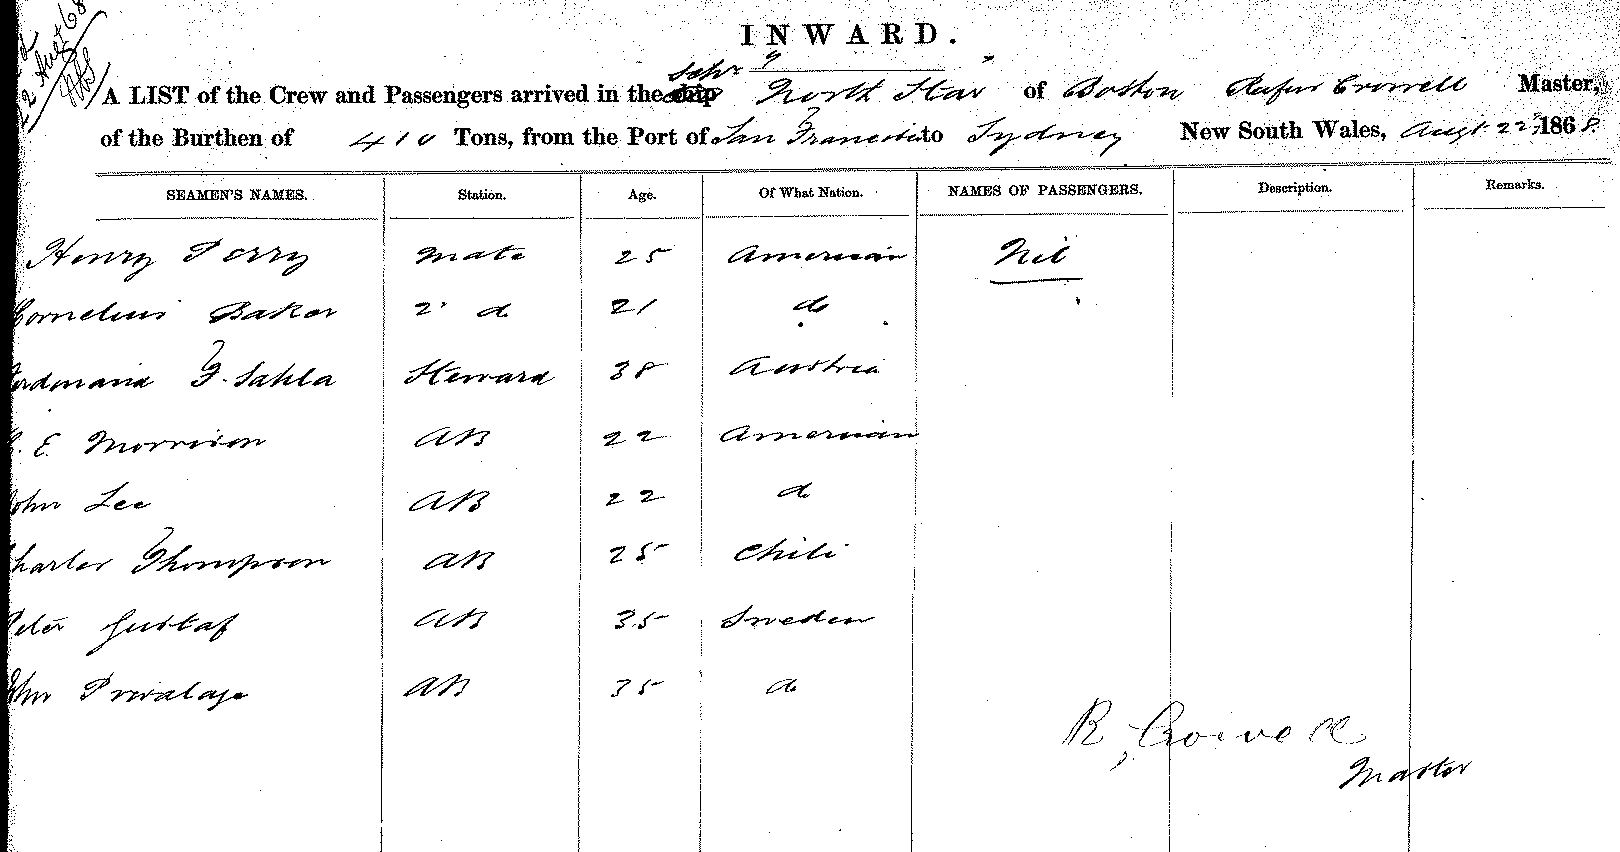 22 Augt 68
INWARD.
A LIST of the Crew and Passengers arrived in the Schr North Star of Boston Rufus Crowell Master,
of the Burthen of 410 Tons, from the Port of San Francisco to Sydney New South Wales, Augt 22nd 1868
SEAMEN'S NAMES. Station. Age. Of What Nation. NAMES OF PASSENGERS. Description. Remarks.
Henry Perry Mate 25 American Nil
Cornelius Baker 2d do 21 do
Ferdinand F. Sahla Steward 38 Austria
E. Morrison AB 22 American
John Lee AB 22 do
Charles Thompson AB 25 Chili
Peter Gustaf AB 35 Sweden
John AB 35 do
R. Crowell
Master